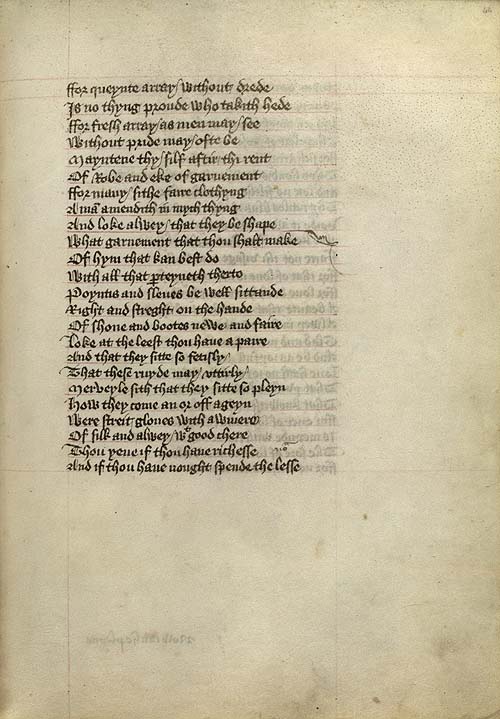 ffor queynte array / without drede
Is no thyng proude who takith hede
ffor fresh array / as men may / see
Without pride may / ofte be
Mayntene thy / silf aftir thi rent
Of Robe and eke of garnement
ffor many / sithe faire clothyng
A mā amendith in mych thyng
And loke alwey / that they be shape
What garnement that thou shalt make
Of hym that kan best do
With all that ꝑteyneth therto
Poyntis and sleues be well sittande
Right and streght on the hande
Of shone and bootes newe and faire
Loke at the leest thou haue a paire
And that they sitte so fetisly /
That these ruyde may / vttirly /
Merveyle sith that they sitte so pleyn
How they come on or off ageyn
Were streit gloues with awmere
Of silk and alwey / wᵗ good chere
Thou yeue if thou haue richesse
And if thou haue nought spende the lesse